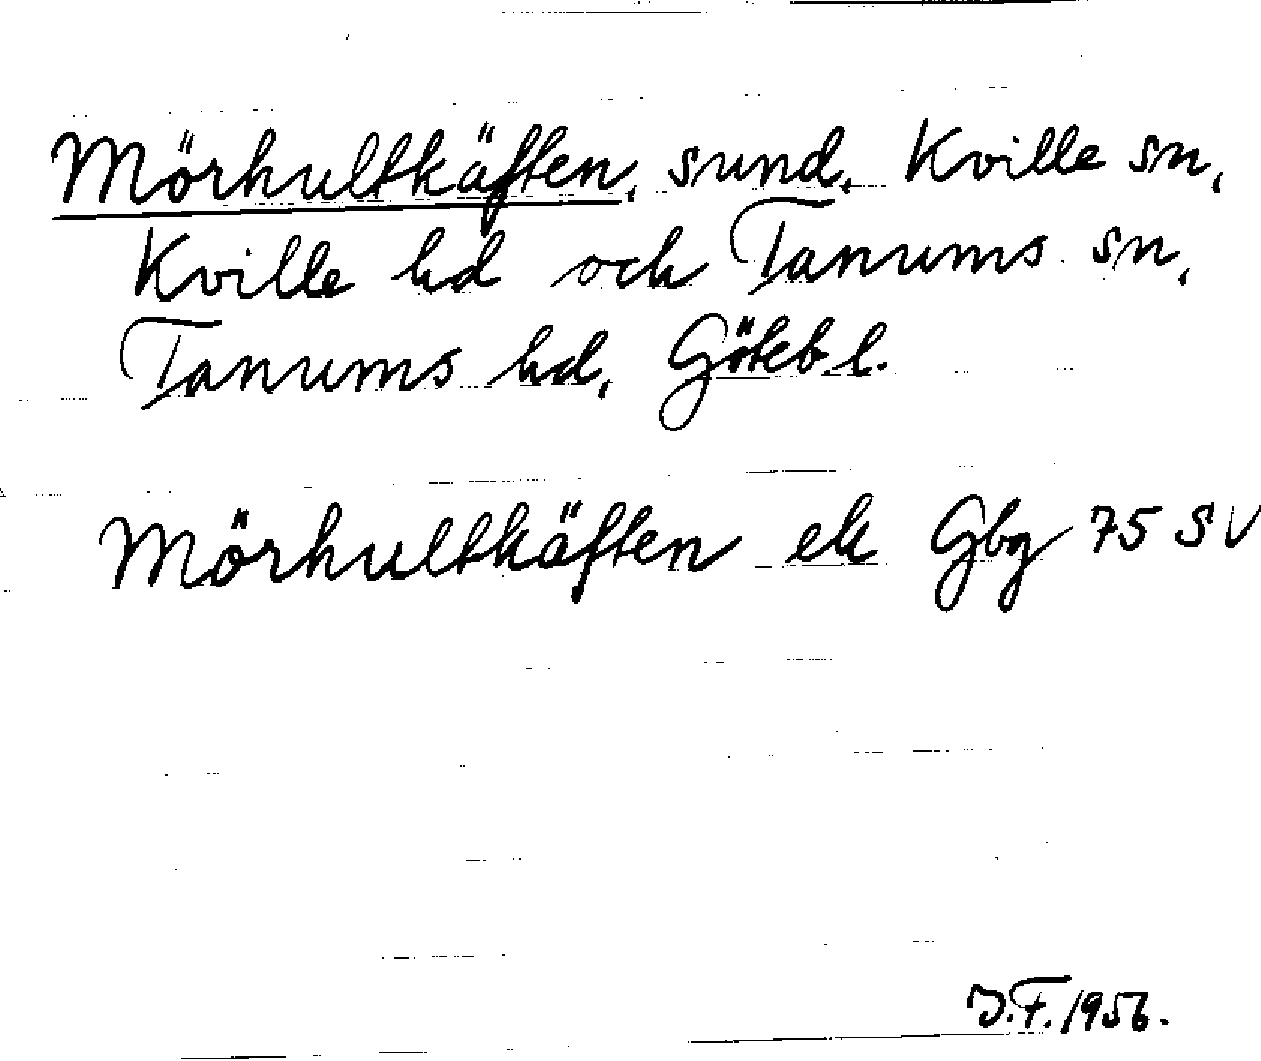 Mörhultkäften, sund, Kville sn,
Kville hd och Tanums sn,
Tanums hd, Götebl.
Mörhultkäften ek Gbg 75 SV
J.F. 1956.